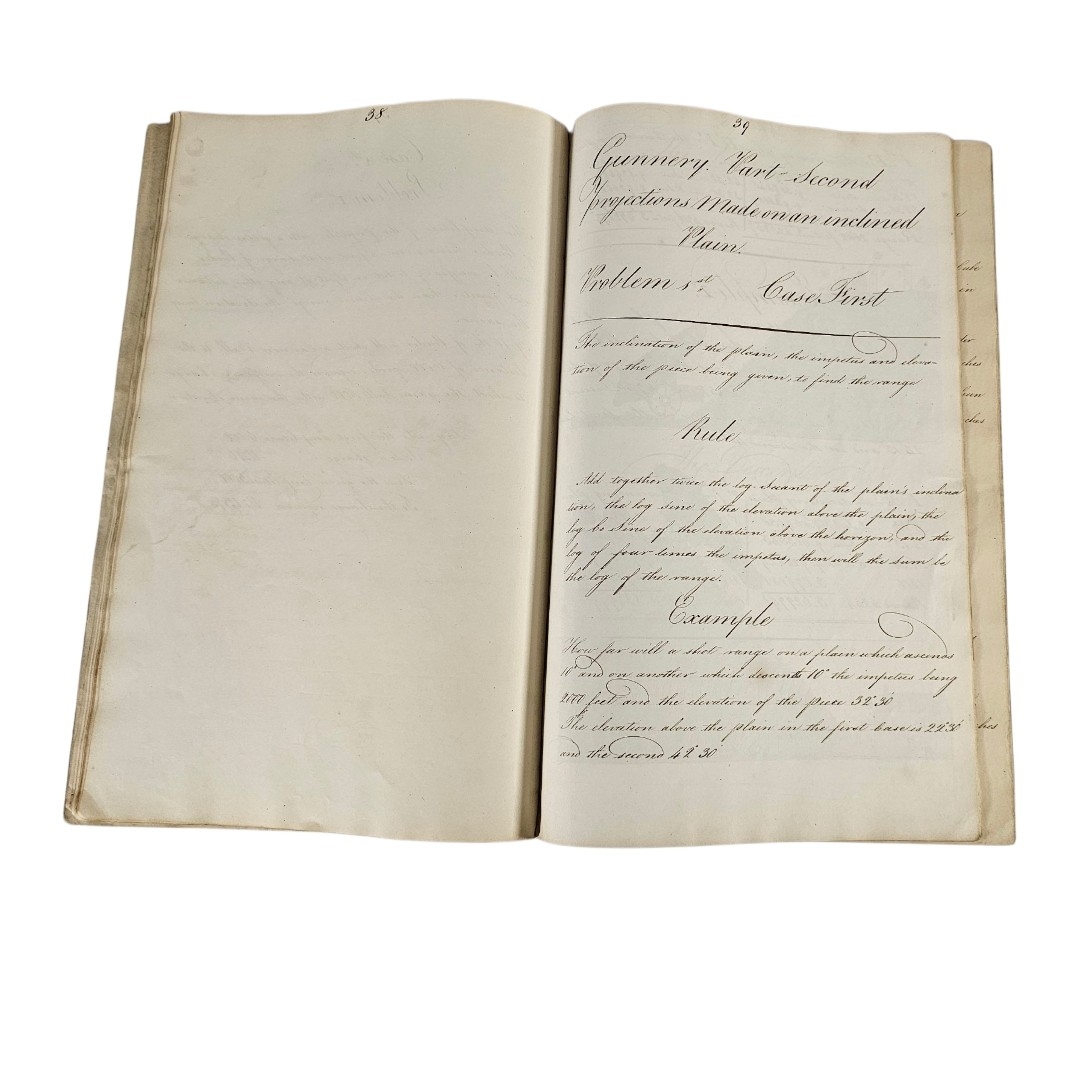 38.
39
Gunnery. Part Second
Projections Made on an inclined
Plain.
Problem 1st Case First
The inclination of the plain, the impetus and eleva-
tion of the piece being given, to find the range
Rule
Add together twice the log. Secant of the plain's inclina
tion, the log sine of the elevation above the plain, the
log Co Sine of the elevation above the horezon, and the
log of four times the impetus, then will the sum be
the log of the range.
Example
How far will a shot range on a plain which ascends
10° and on another which descents 10° the impetus being
2000 feet and the elevation of the piece 32° 30'
The elevation above the plain in the first Case is 22° 30'
and the second 42° 30'